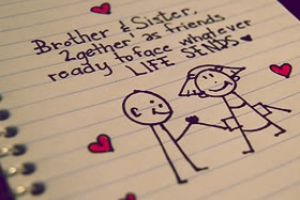 Brother & Sister,
2gether as friends
ready to face whatever
LIFE SENDS